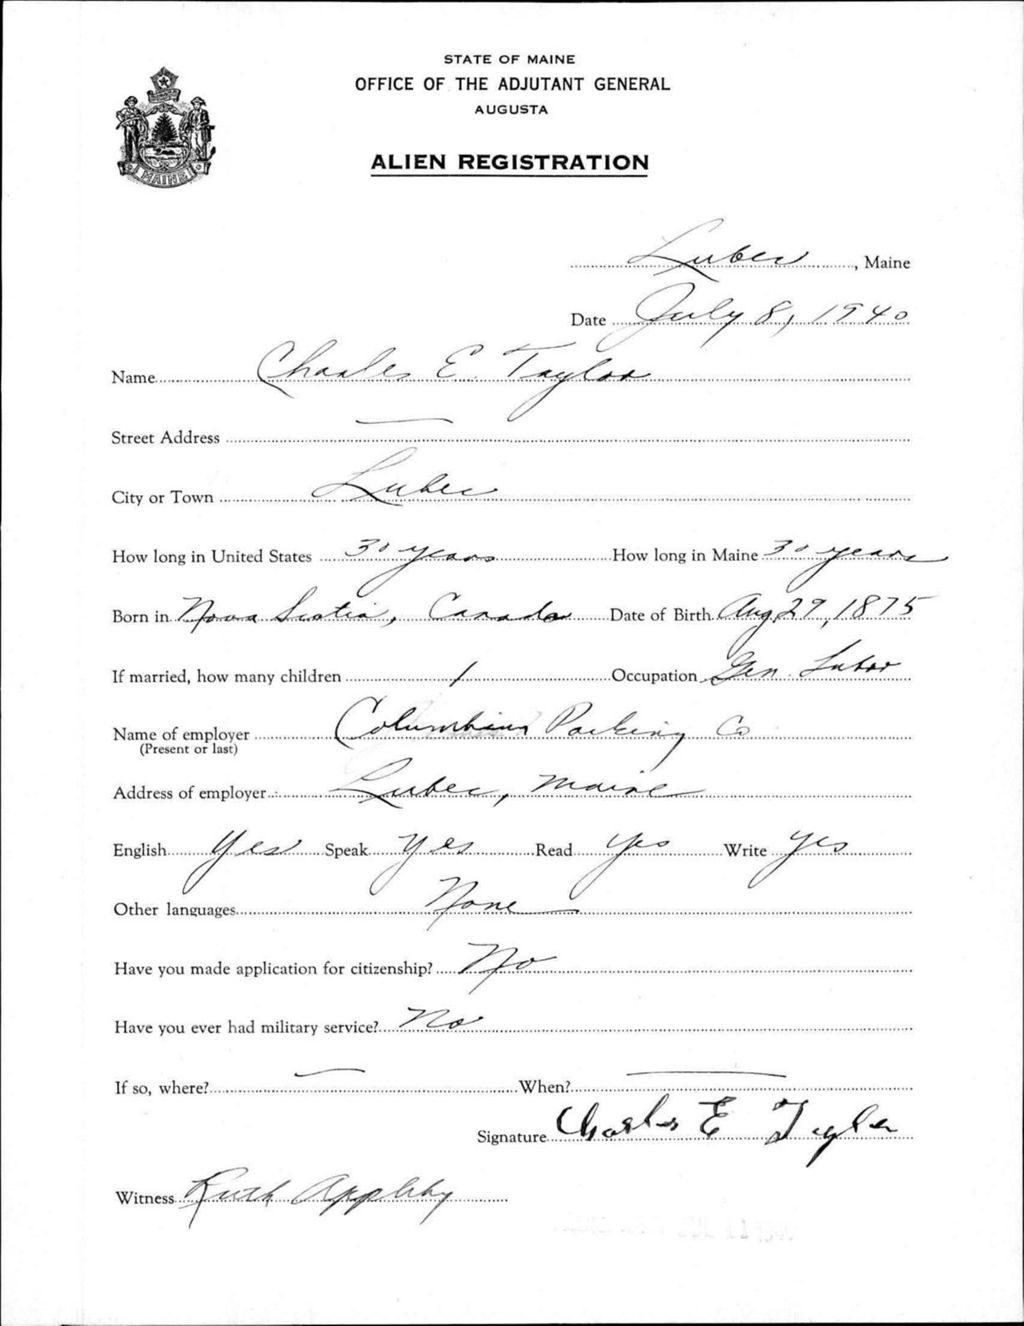 STATE OF MAINE
OFFICE OF THE ADJUTANT GENERAL
AUGUSTA
ALIEN REGISTRATION
MAINE
Lubec, Maine
Date July 8, 1940
Name Charles E. Taylor
Street Address —
City or Town Lubec
How long in United States 30 years How long in Maine 30 years
Born in Nova Scotia, Canada Date of Birth Aug 29, 1875
If married, how many children 1 Occupation Gen. Labor
Name of employer Columbian Packing Co
(Present or last)
Address of employer Lubec, Maine
English Yes Speak Yes Read Yes Write Yes
Other languages None
Have you made application for citizenship? No
Have you ever had military service? No
If so, where? — When? —
Signature Charles E Taylor
Witness Ruth Appleby